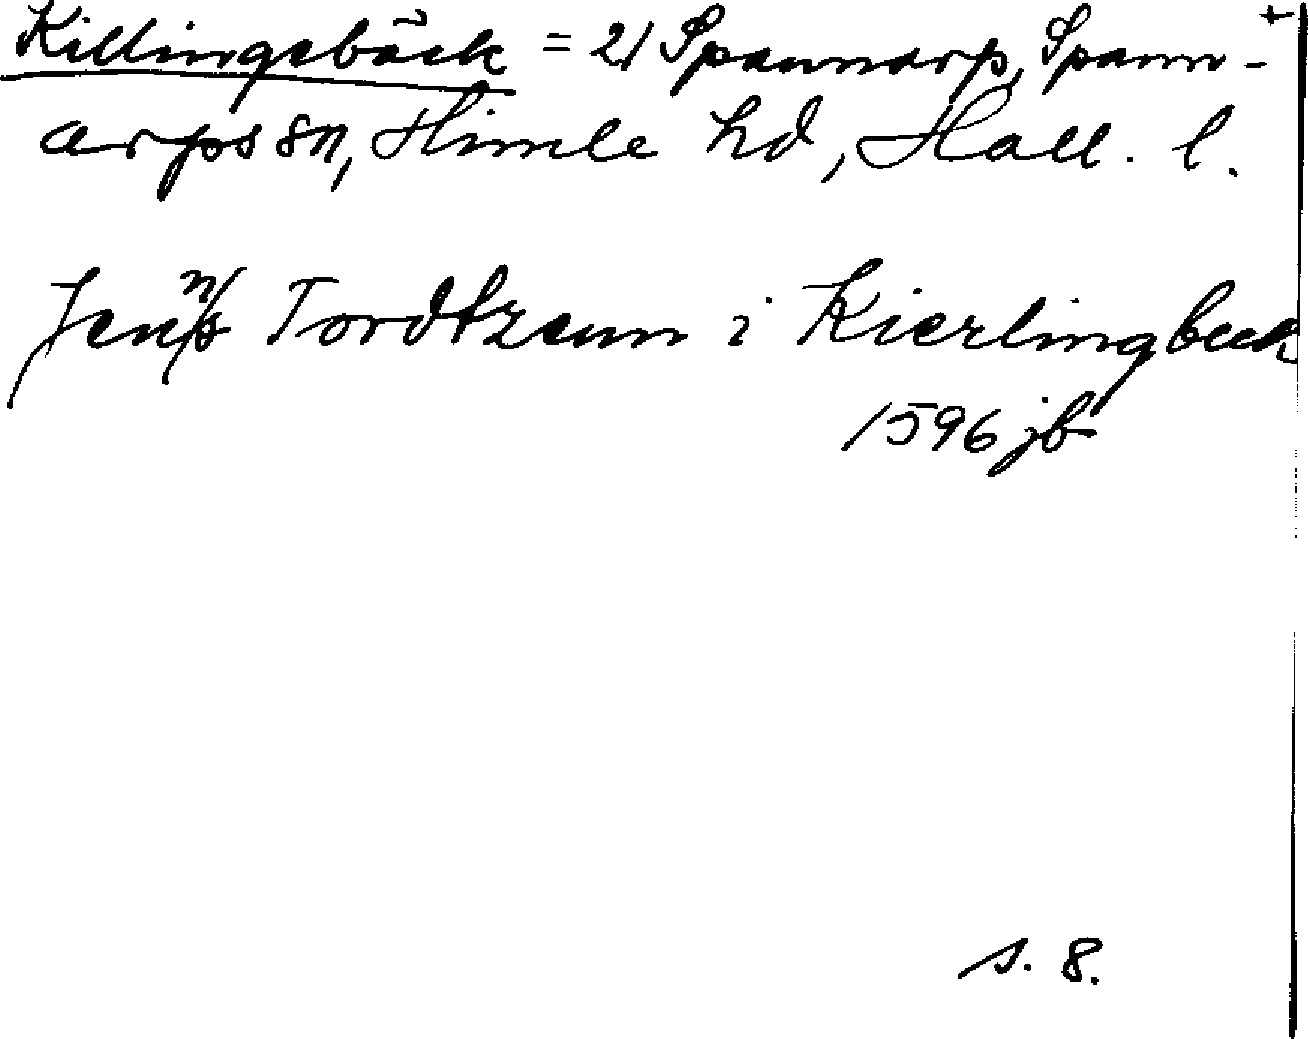 Killingsbäck = 21 Spannarp, Spann- +
arps sn, Himle hd, Hall. l.
Jenns Tordtzenn i Kierlingbeck
1596 jb
s. 8.